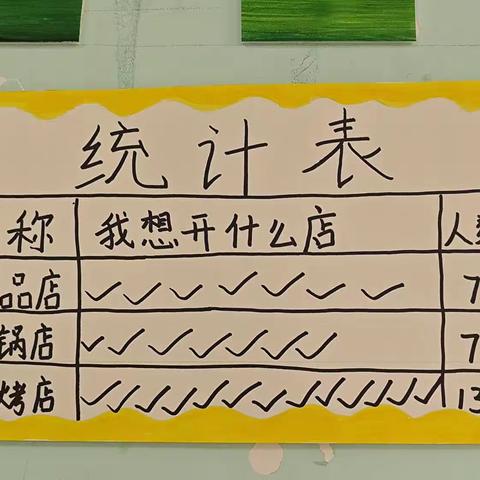 统计表
称 我想开什么店 人数
品店 ✓✓✓✓✓✓✓ 7
锅店 ✓✓✓✓✓✓✓ 7
烤店 ✓✓✓✓✓✓✓✓✓✓✓✓✓ 13